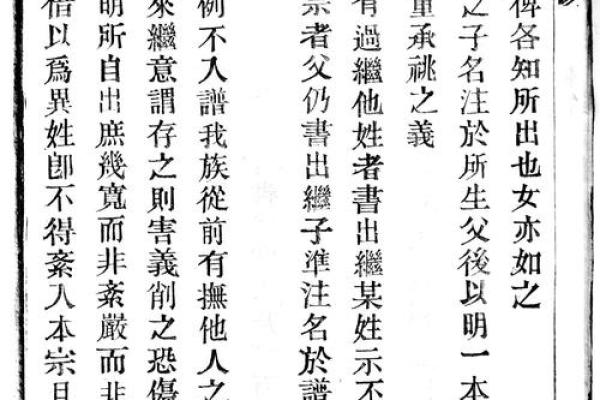 俾各知所出也女亦如之
之子名注於所生父後以明一本
重承祧之義
有過繼他姓者書出繼某姓示不
宗者父仍書出繼子準注名於譜
例不入譜我族從前有撫他人之
來繼意謂存之則害義削之恐傷
明所自出庶幾寬而非紊嚴而非
借以爲異姓卽不得紊入本宗且